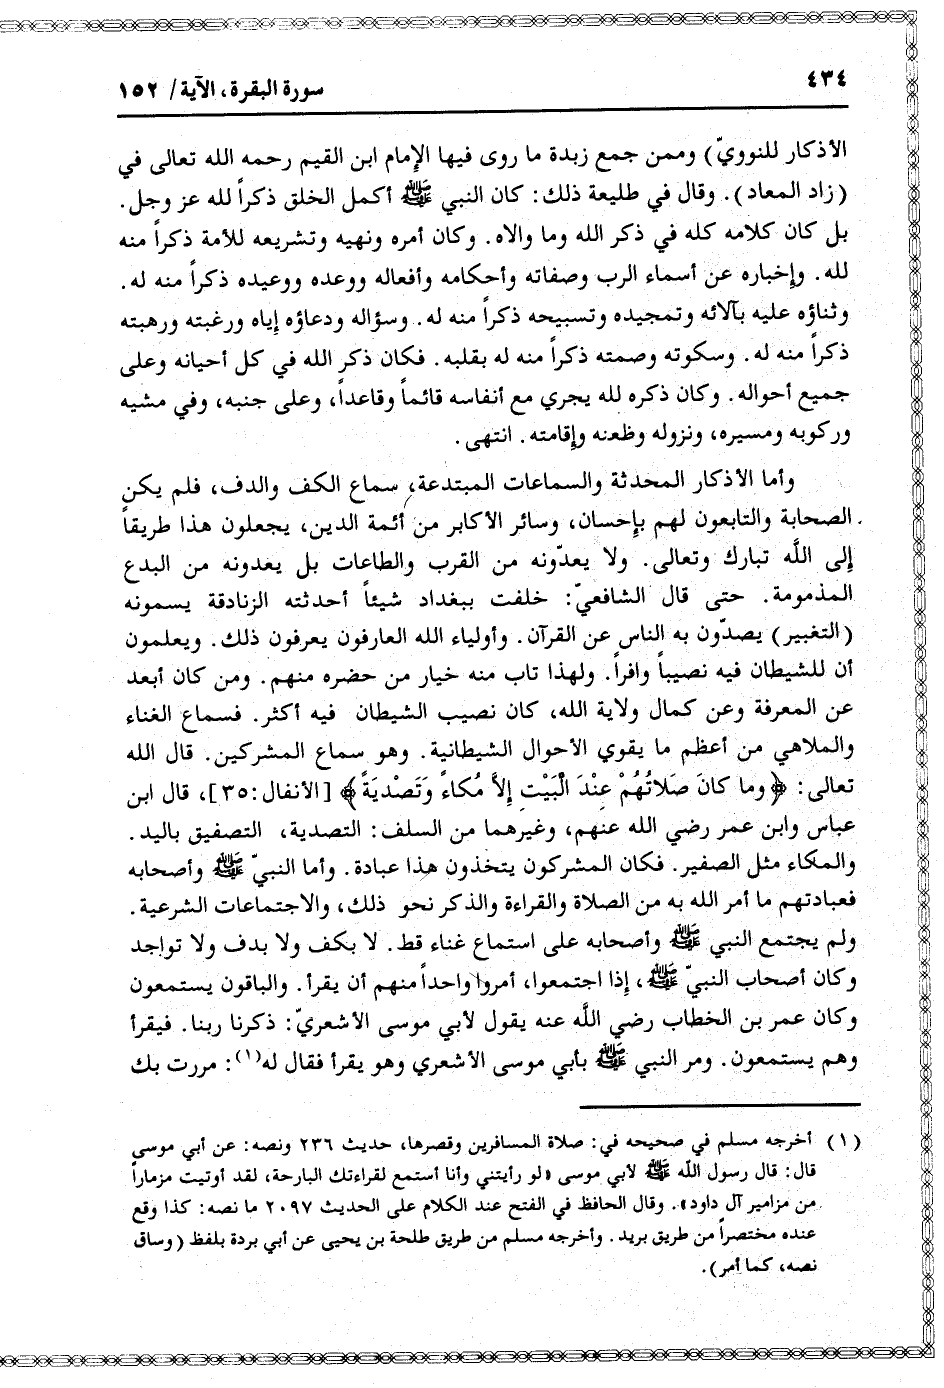 ٤٣٤
سورة البقرة، الآية/ ١٥٢
الأذكار للنوويّ) وممن جمع زبدة ما روى فيها الإمام ابن القيم رحمه الله تعالى في
(زاد المعاد). وقال في طليعة ذلك: كان النبي ﷺ أكمل الخلق ذكراً لله عز وجل.
بل كان كلامه كله في ذكر الله وما والاه. وكان أمره ونهيه وتشريعه للأمة ذكراً منه
لله. وإخباره عن أسماء الرب وصفاته وأحكامه وأفعاله ووعده ووعيده ذكراً منه له.
وثناؤه عليه بآلائه وتمجيده وتسبيحه ذكراً منه له. وسؤاله ودعاؤه إياه ورغبته ورهبته
ذكراً منه له. وسكوته وصمته ذكراً منه له بقلبه. فكان ذكر الله في كل أحيانه وعلى
جميع أحواله. وكان ذكره لله يجري مع أنفاسه قائماً وقاعداً، وعلى جنبه، وفي مشيه
وركوبه ومسيره، ونزوله وظعنه وإقامته. انتهى.
وأما الأذكار المحدثة والسماعات المبتدعة، سماع الكف والدف، فلم يكن
الصحابة والتابعون لهم بإحسان، وسائر الأكابر من أئمة الدين، يجعلون هذا طريقاً
إلى اللَّه تبارك وتعالى. ولا يعدّونه من القرب والطاعات بل يعدونه من البدع
المذمومة. حتى قال الشافعيّ: خلفت ببغداد شيئاً أحدثته الزنادقة يسمونه
(التغبير) يصدّون به الناس عن القرآن. وأولياء الله العارفون يعرفون ذلك. ويعلمون
أن للشيطان فيه نصيباً وافراً. ولهذا تاب منه خيار من حضره منهم. ومن كان أبعد
عن المعرفة وعن كمال ولاية الله، كان نصيب الشيطان فيه أكثر. فسماع الغناء
والملاهي من أعظم ما يقوي الأحوال الشيطانية. وهو سماع المشركين. قال الله
تعالى: ﴿وما كانَ صَلاتُهُمْ عِنْدَ الْبَيْتِ إِلاَّ مُكاءً وَتَصْدِيَةً﴾ [الأنفال:٣٥]، قال ابن
عباس وابن عمر رضي الله عنهم، وغيرهما من السلف: التصدية، التصفيق باليد.
والمكاء مثل الصفير. فكان المشركون يتخذون هذا عبادة. وأما النبيّ ﷺ وأصحابه
فعبادتهم ما أمر الله به من الصلاة والقراءة والذكر نحو ذلك، والاجتماعات الشرعية.
ولم يجتمع النبي ﷺ وأصحابه على استماع غناء قط. لا بكف ولا بدف ولا تواجد
وكان أصحاب النبيّ ﷺ، إذا اجتمعوا، أمروا واحداً منهم أن يقرأ. والباقون يستمعون
وكان عمر بن الخطاب رضي اللَّه عنه يقول لأبي موسى الأشعريّ: ذكرنا ربنا. فيقرأ
وهم يستمعون. ومر النبي ﷺ بأبي موسى الأشعري وهو يقرأ فقال له(١): مررت بك
(١) أخرجه مسلم في صحيحه في: صلاة المسافرين وقصرها، حديث ٢٣٦ ونصه: عن أبي موسى
قال: قال رسول اللَّه ﷺ لأبي موسى «لو رأيتني وأنا أستمع لقراءتك البارحة، لقد أوتيت مزماراً
من مزامير آل داود». وقال الحافظ في الفتح عند الكلام على الحديث ٢٠٩٧ ما نصه: كذا وقع
عنده مختصراً من طريق بريد. وأخرجه مسلم من طريق طلحة بن يحيى عن أبي بردة بلفظ (وساق
نصه، كما أمر).